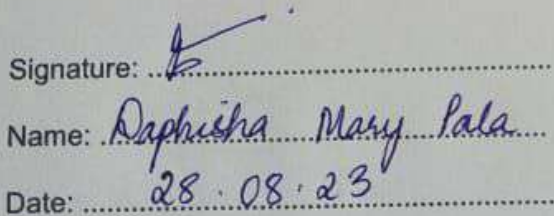 Signature: ................................................
Name: Daphisha Mary Pala
Date: 28.08.23